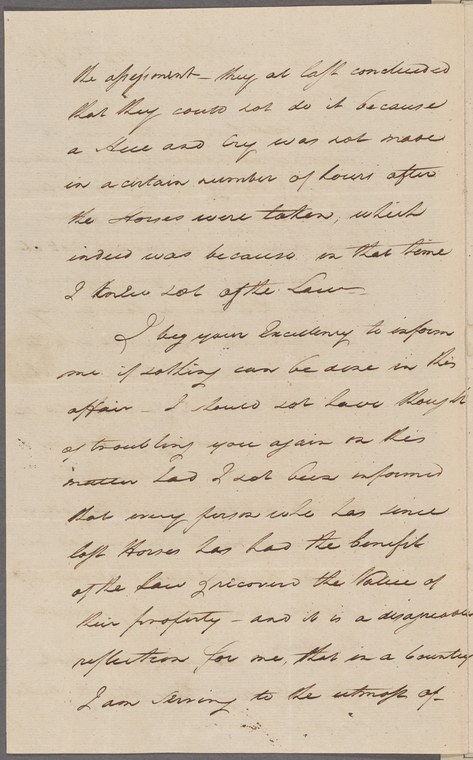 the assessment – they at last concluded
that they could not do it because
a Hue and Cry was not made
in a certain number of hours after
the Horses were taken, which
indeed was because in that time
I knew not of the Law –
I beg your Excellency to inform
me if nothing can be done in this
affair – I should not have thought
of troubling you again on this
matter had I not been informed
that every person who has since
lost Horses has had the benefit
of the Law & recovered the Value of
their property – and it is a disagreeable
reflection for me, that in a Country
I am serving to the utmost of